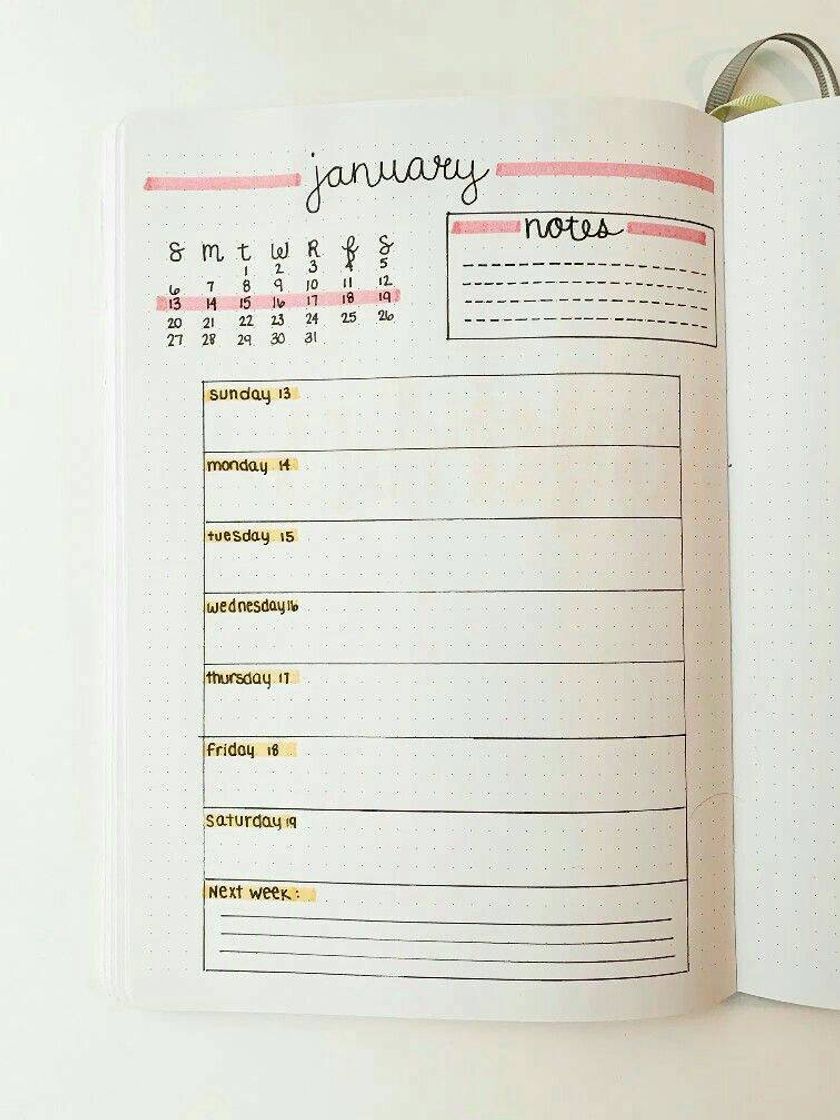 january
S M t W R f S
1 2 3 4 5
6 7 8 9 10 11 12
13 14 15 16 17 18 19
20 21 22 23 24 25 26
27 28 29 30 31
notes
sunday 13
monday 14
tuesday 15
wednesday 16
thursday 17
friday 18
saturday 19
Next week: